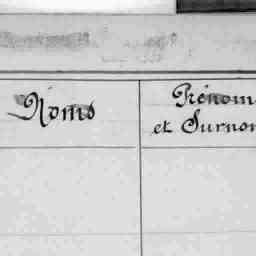 Noms
Prénoms
et Surnom